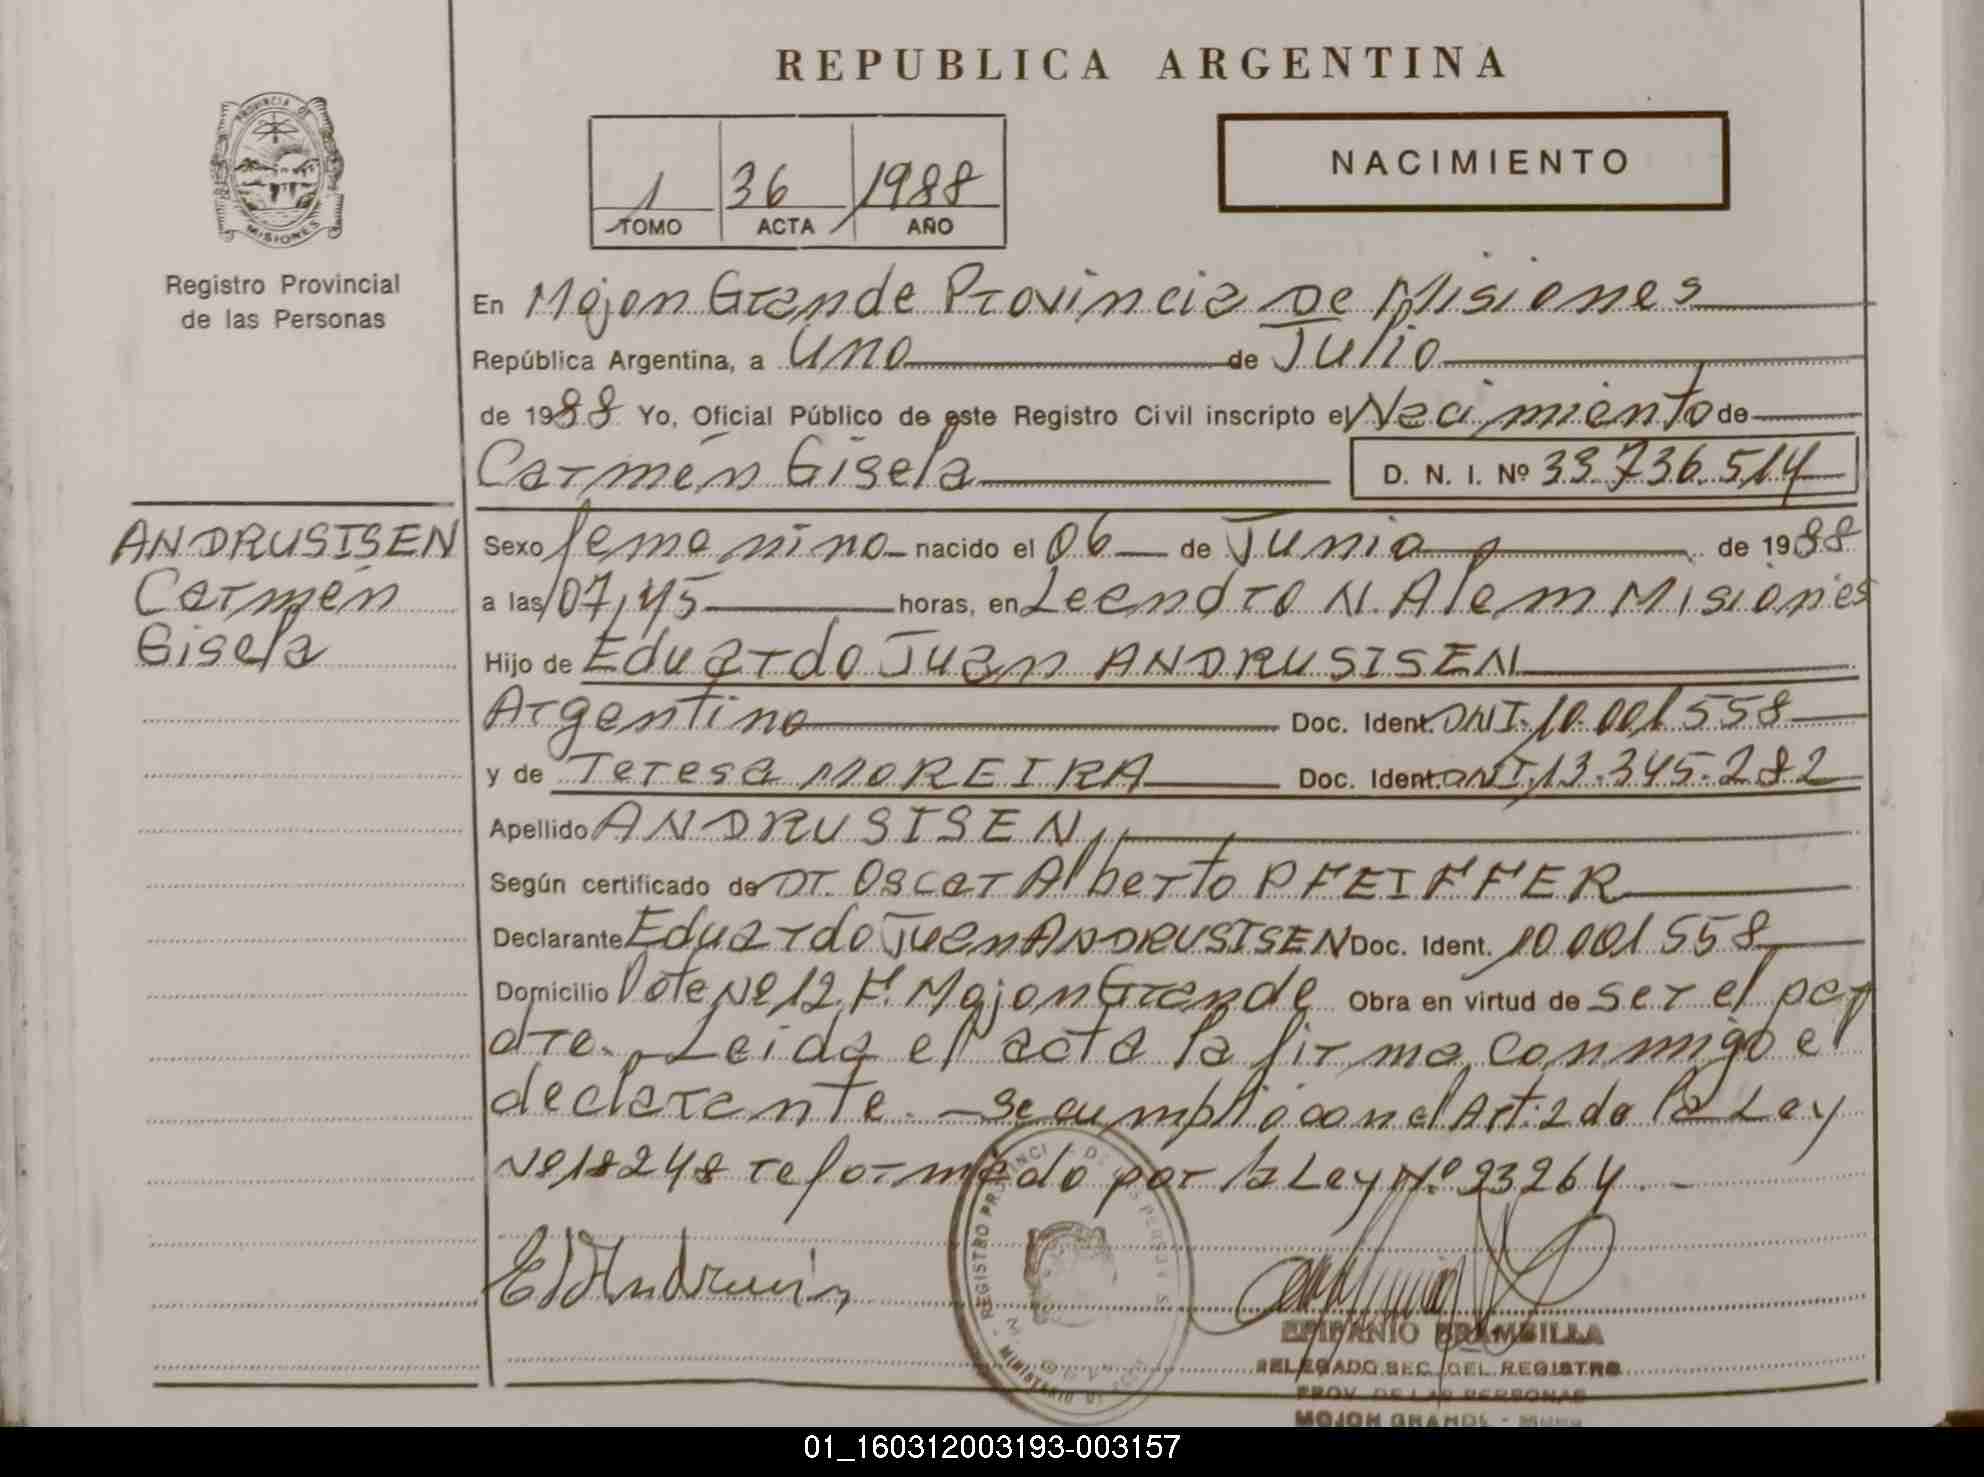 REPUBLICA ARGENTINA
PROVINCIA DE
MISIONES
Registro Provincial
de las Personas
1 36 1988
TOMO ACTA AÑO
NACIMIENTO
En Mojon Grande Provincia De Misiones
República Argentina, a Uno de Julio
de 1988 Yo, Oficial Público de este Registro Civil inscripto el Nacimiento de
Carmén Gisela D. N. I. Nº 33.736.514
ANDRUSISEN
Carmén
Gisela
Sexo femenino nacido el 06 de Junio de 1988
a las 07,45 horas, en Leandro N. Alem Misiones
Hijo de Eduardo Juan ANDRUSISEN
Argentino Doc. Ident. DNI. 10.001.558
y de Teresa MOREIRA Doc. Ident. DNI. 13.345.282
Apellido ANDRUSISEN
Según certificado de Dr. Oscar Alberto PFEIFFER
Declarante Eduardo Juan ANDRUSISEN Doc. Ident. 10.001.558
Domicilio Lote Nº 12. F. Mojon Grande Obra en virtud de ser el pa
dre. Leida el acta la firma conmigo el
declarante. - Se cumplió con el Art. 2 de la Ley
Nº 18248 reformado por la Ley Nº 23264. -
REGISTRO PROVINCI
EPIFANIO BRAMBILLA
DELEGADO SEC. DEL REGISTRO
PROV. DE LAS PERSONAS
MOJON GRANDE -
01_160312003193-003157